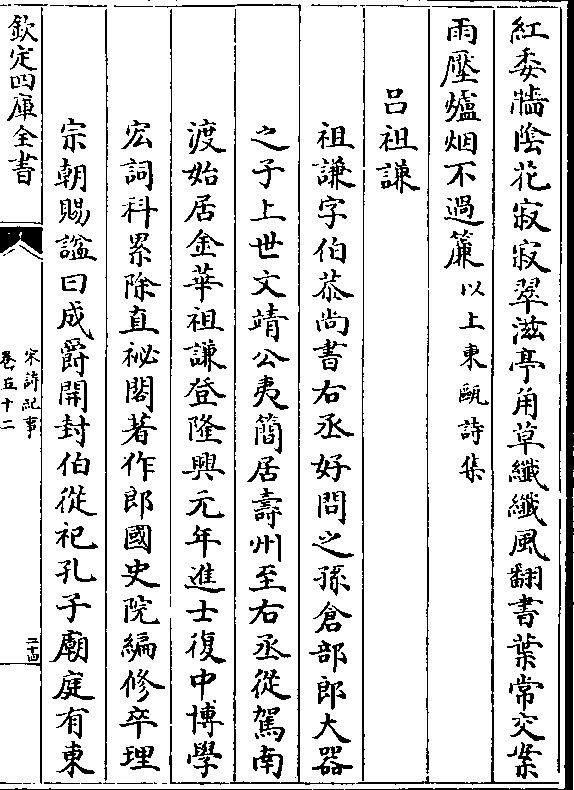 紅委牆陰花寂寂翠滋亭角草纖纖風翻書葉常交案
雨壓爐烟不過簾以上東甌詩集
呂祖謙
祖謙字伯恭尚書右丞好問之孫倉部郎大器
之子上世文靖公夷簡居壽州至右丞從駕南
渡始居金華祖謙登隆興元年進士復中博學
宏詞科累除直祕閣著作郎國史院編修卒理
宗朝賜諡曰成爵開封伯從祀孔子廟庭有東
欽定四庫全書
宋詩紀事
卷五十二
二十四